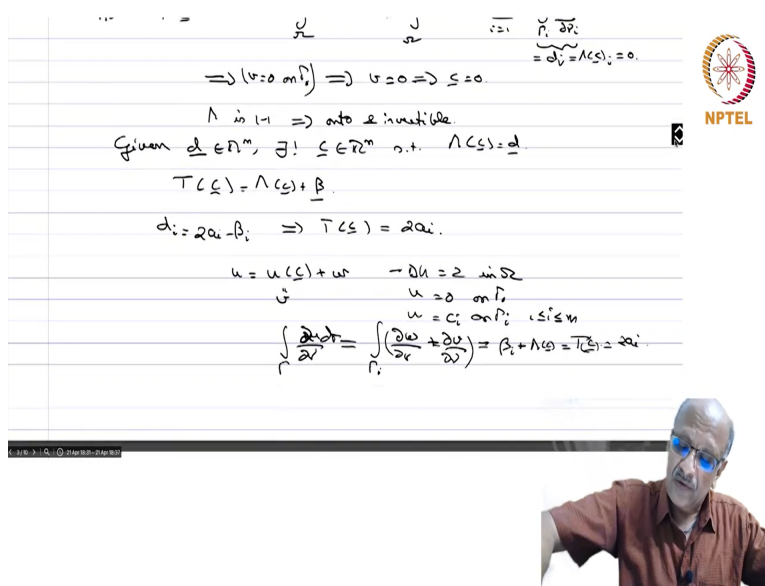 Ω Ω i=1 Γi ∂νi
= di = Λ(c)i = 0.
⟹ (v=0 on Γ0) ⟹ v=0 ⟹ c=0.
NPTEL
Λ is 1-1 ⟹ onto & invertible.
Given d ∈ ℝᵐ, ∃! c ∈ ℝᵐ s.t. Λ(c)=d
T(c) = Λ(c) + β.
di = 2ai - βi ⟹ T(c) = 2ai.
u = u(c) + w -Δu = 2 in Ω
v u = 0 on Γ0
u = ci on Γi 1≤i≤m
∫Γ ∂u/∂ν dσ = ∫Γi (∂w/∂ν + ∂v/∂ν) = βi + Λ(c) = T(c) = 2ai.
3/10 21 Apr 18:31 - 21 Apr 18:37